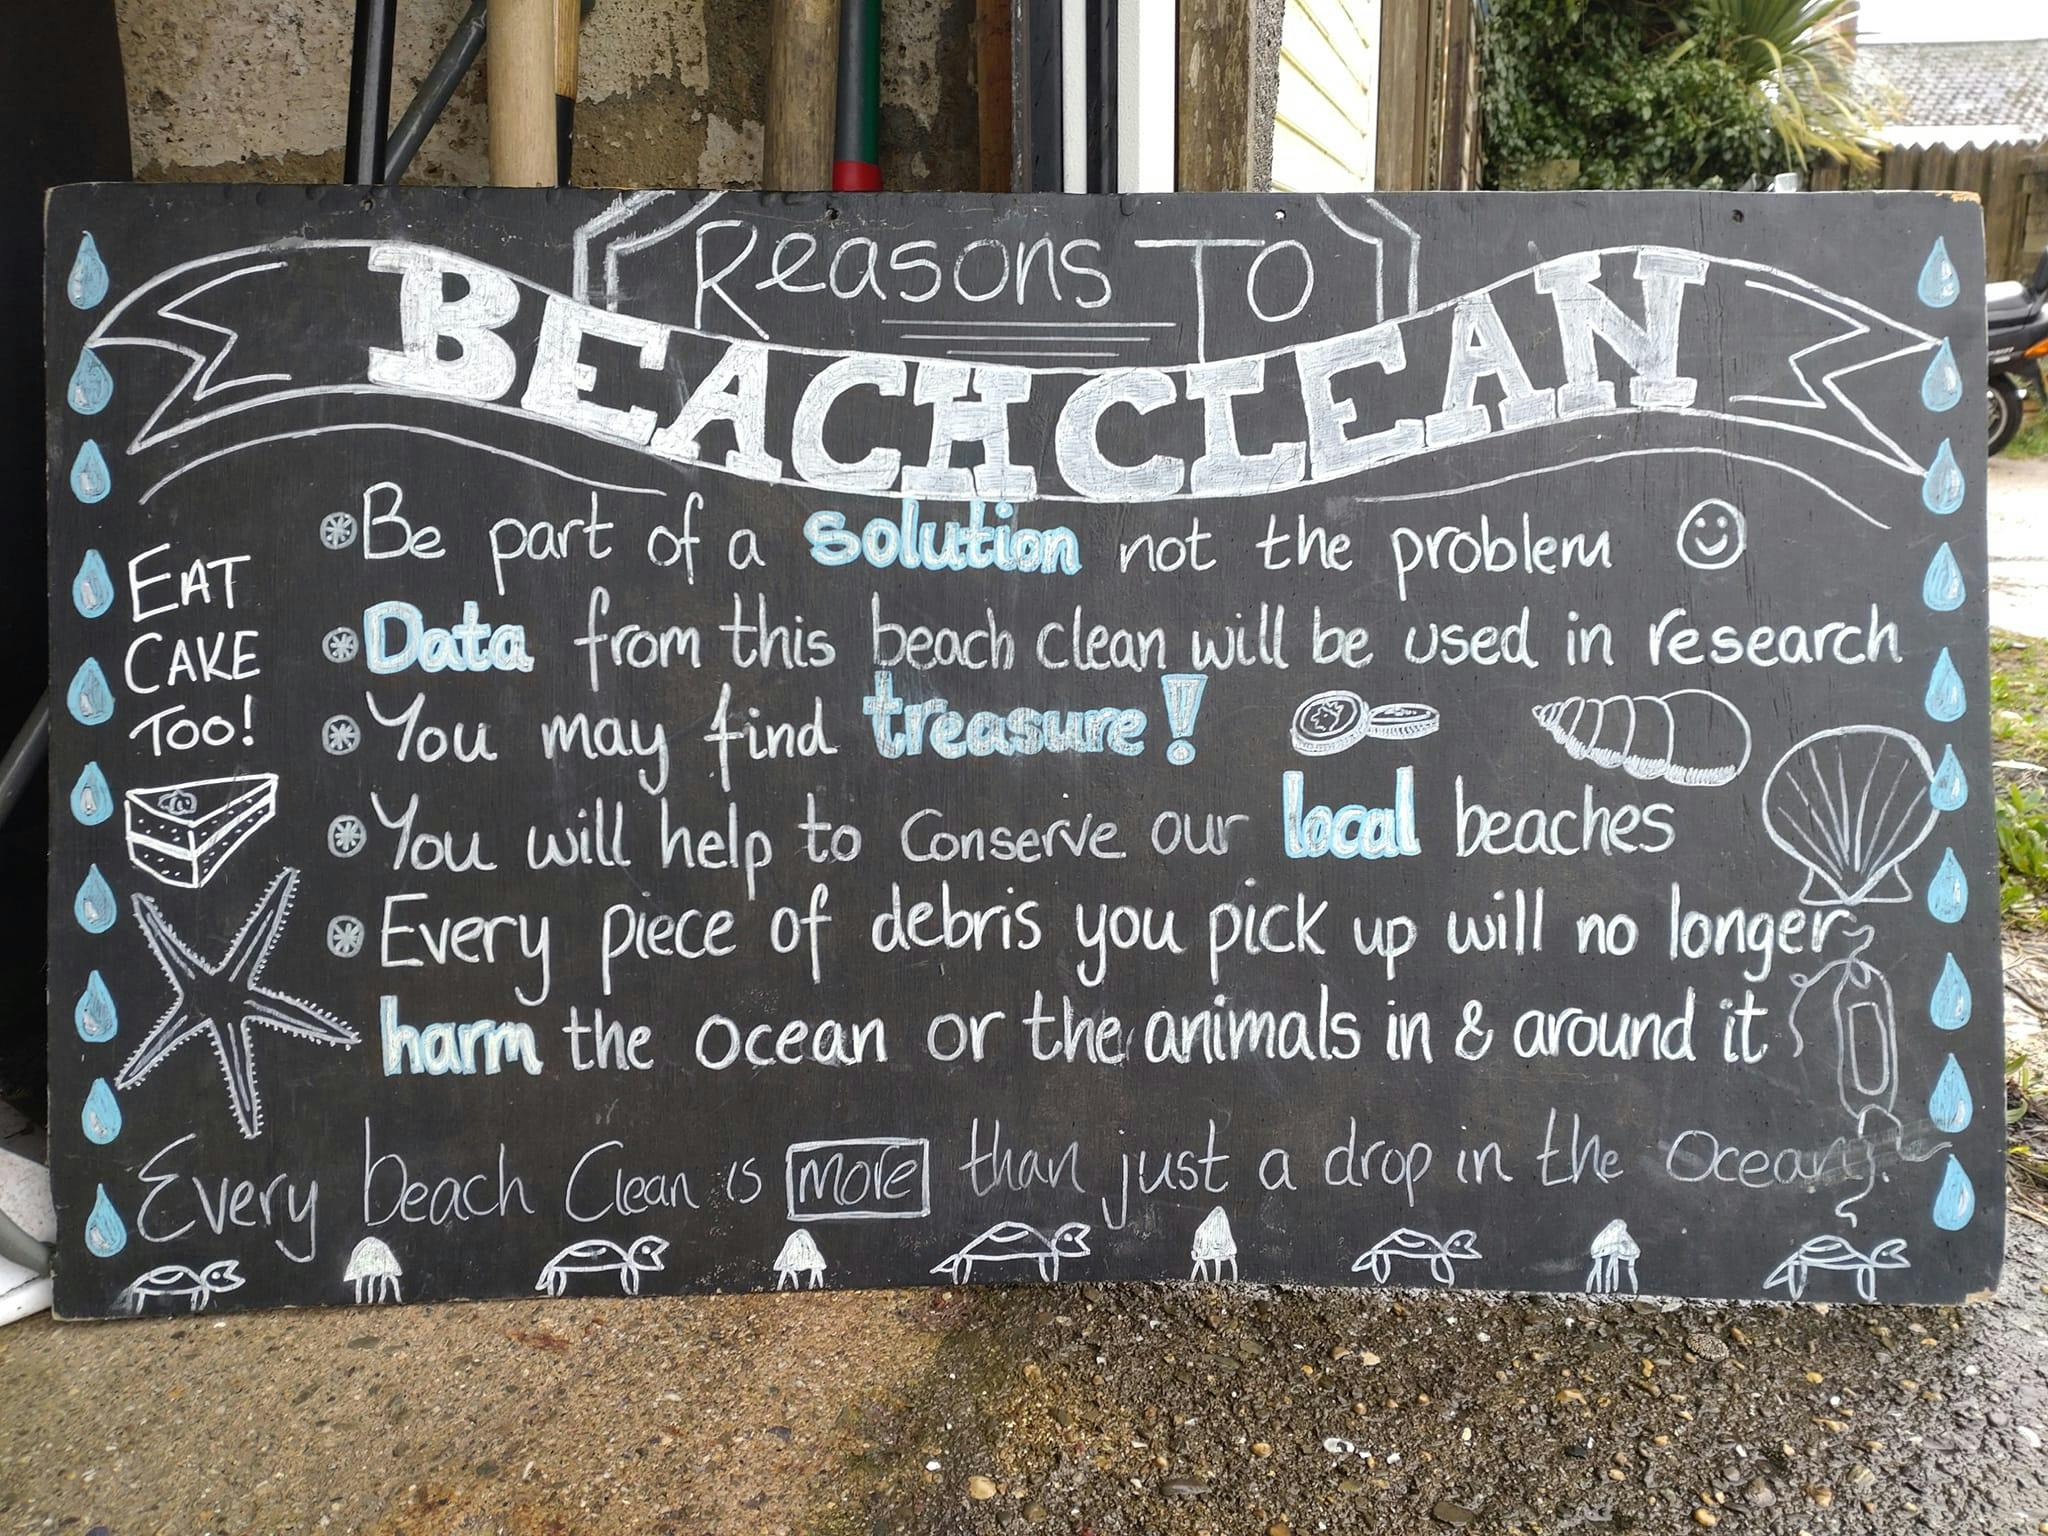 Reasons To
BEACH CLEAN
Be part of a solution not the problem
Data from this beach clean will be used in research
You may find treasure!
You will help to conserve our local beaches
Every piece of debris you pick up will no longer
harm the ocean or the animals in & around it
EAT
CAKE
TOO!
Every beach Clean is more than just a drop in the Ocean.